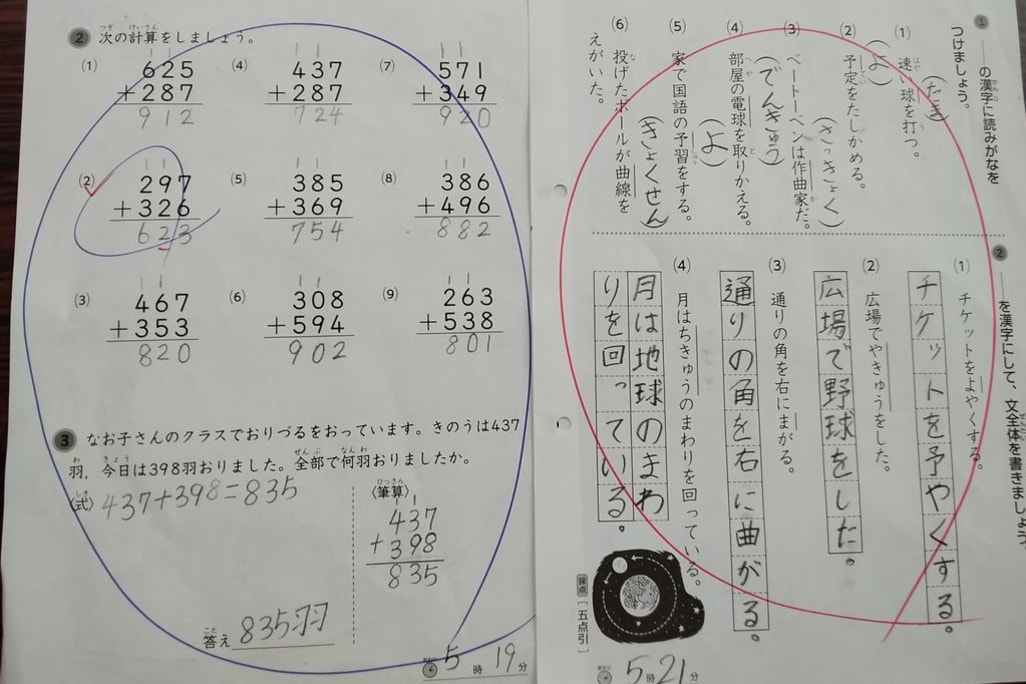 2 次の計算をしましょう。
つぎ けいさん
(1) 625
+287
912
(4) 437
+287
724
(7) 571
+349
920
(2) 297
+326
623
(5) 385
+369
754
(8) 386
+496
882
(3) 467
+353
820
(6) 308
+594
902
(9) 263
+538
801
3 なお子さんのクラスでおりづるをおっています。きのうは437
羽，今日は398羽おりました。全部で何羽おりましたか。
わ きょう ぜんぶ なんわ
〈式〉 437+398=835
しき
〈筆算〉
ひっさん
437
+398
835
答え 835羽
こた
5時19分
1 ――の漢字に読みがなを
つけましょう。
(1) 速い球を打つ。
(たま)
(2) 予定をたしかめる。
(よ)
(3) ベートーベンは作曲家だ。
(さっきょく)
(4) 部屋の電球を取りかえる。
(でんきゅう)
(5) 家で国語の予習をする。
(よ)
(6) 投げたボールが曲線を
えがいた。
(きょくせん)
2 ――を漢字にして、文全体を書きましょう。
(1) チケットをよやくする。
チケットを予やくする。
(2) 広場でやきゅうをした。
広場で野球をした。
(3) 通りの角を右にまがる。
通りの角を右に曲がる。
(4) 月はちきゅうのまわりを回っている。
月は地球のまわ
りを回っている。
採点 [五点引]
5時21分